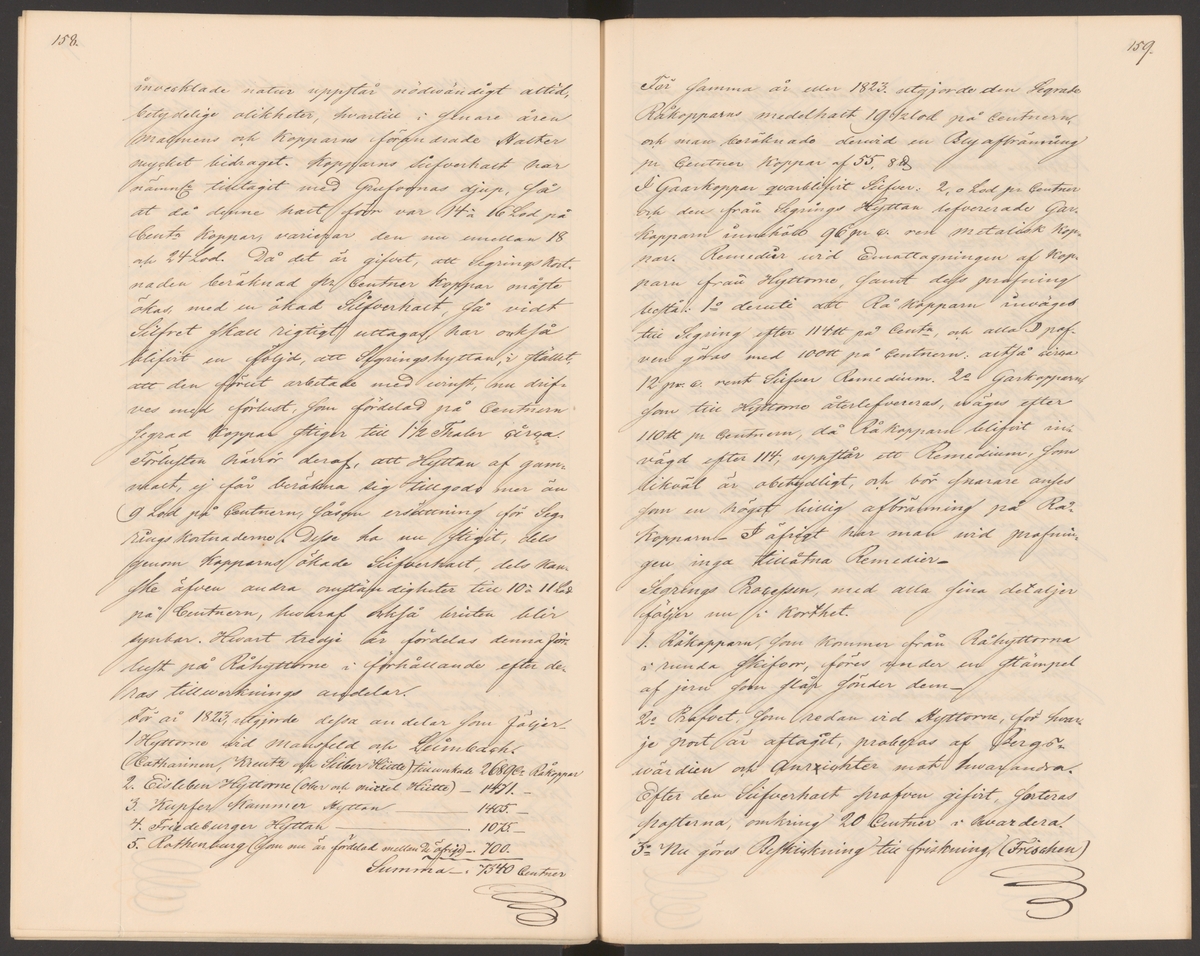 158.
invecklade natur uppstår nödwändigt altid,
betydelige olikheter, hvartil i senare åren
malmens och Kopparns förändrade Halter
mycket bidraget. Kopparns Silfverhalt har
nämnl: tilltagit med Grufvornas djup, så
at då denne halt förr var 14 à 16 Lod på
Centn Koppar, varierar den nu emellan 18
och 24 Lod. Då det är gifvet, att Segrings kost-
naden beräknad pr Centner Koppar måste
ökas, med en ökad Silfverhalt, så vidt
Silfret skall rigtigt uttagas, har också
blifvit en följd, att Segringshyttan, i stället,
att den förut arbetade med vinst, nu drif-
ves med förlust, som fördelad på Centnern
segrad Koppar stiger till 1 1/2 Thaler circa.
Förlusten härrör deraf, att Hyttan af gam-
malt, ej får beräkna sig tillgodo mer än
9 Lod på Centnern, såsom ersättning för Seg-
rings kostnaderne. Desse ha nu stigit, dels
genom Kopparns ökade Silfverhalt, dels kan-
ske äfven andra omständigheter till 10 à 11 Lod
på Centnern, hvaraf också bristen blir
synbar. Hwart tredje år fördelas denna för-
lust på Råhyttorne i förhållande efter de-
ras tillwerknings andelar.
För år 1823, utgjorde dessa andelar som följer_
1 Hyttorne vid Mansfeld och Leimbach.
(Catharinen, Kreutz och Silber Hütte) tillverkade 2689 Cr Råkoppar
2. Eisleben Hyttorne (ober och mittel Hütte) _ 1471. _
3. Kupfer Kammer Hyttan _ 1405. _
4. Friedeburger Hyttan _ 1075 _
5. Rothenburg (som nu är fördelad mellan de öfrige) _ 700.
Summa _ . 7340 Centner
159.
För samma år eller 1823, utgjorde den Segrade
Råkopparns medelhalt 19 1/2 lod på Centnern,
och man beräknade dervid en Blyafbränning
pr Centner Koppar af 55, 8 ℔
I Gaarkoppar qvarblifvit Silfver: 2,0 Lod pr Centner
och den från Segrings Hyttan lefvererade Gar-
kopparn innehöll 96 pr c. ren metallisk Kop-
par. Remedier vid Emottagningen af Kop-
parn från Hyttorne, samt dess profning
bestå: 1o deruti att Rå Kopparn inväges
till Segring efter 114 ℔ på Centn, och alla Prof-
ven göras med 100 ℔ på Centnern: altså circa
12 pr. c. rent Silfver Remedium. 2o Garkopparn
som till Hyttorne återlefvereras, wäges efter
110 ℔ pr Centnern, då Råkopparn blifvit in-
vägd efter 114, uppstår ett Remedium, som
likväl är obetydligt, och bör snarare anses
som en högst billig afbränning på Rå-
Kopparn_ I öfrigt har man vid profnin-
gen inga tillåtna Remedier_
Segrings Processen, med alla sina detaljer
följer nu i korthet.
1. Råkopparn, som kommer från Råhyttorna
i runda skifvor, föres under en stämpel
af jern som slår sönder dem_
2o Profvet, som redan vid Hyttorne, för hvar-
je post är aftaget, proberas af Bergs-
wärdien och Anrichter mot hwarandra.
Efter den Silfverhalt profven gifvit, sorteras
posterna, omkring 20 Centner i hvardera.
3o Nu göres Beskickning till friskning, (Frischen)